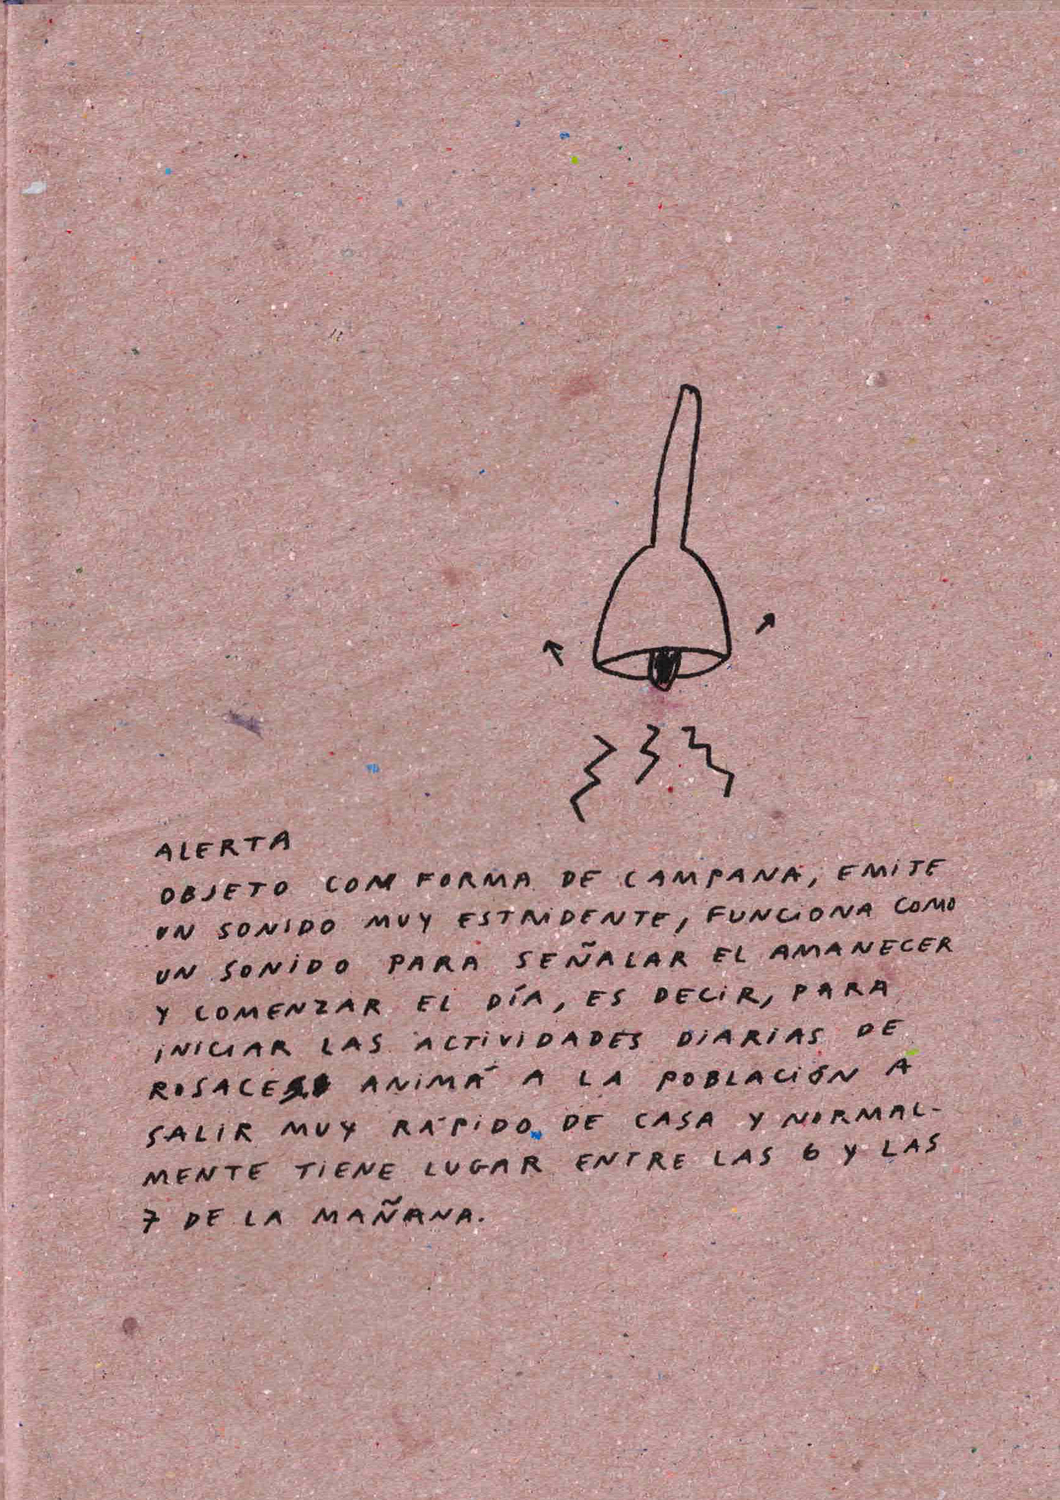 ALERTA
OBJETO CON FORMA DE CAMPANA, EMITE
UN SONIDO MUY ESTRIDENTE, FUNCIONA COMO
UN SONIDO PARA SEÑALAR EL AMANECER
Y COMENZAR EL DÍA, ES DECIR, PARA
INICIAR LAS ACTIVIDADES DIARIAS DE
ANIMA A LA POBLACIÓN A
SALIR MUY RÁPIDO DE CASA Y NORMAL-
MENTE TIENE LUGAR ENTRE LAS 6 Y LAS
7 DE LA MAÑANA.